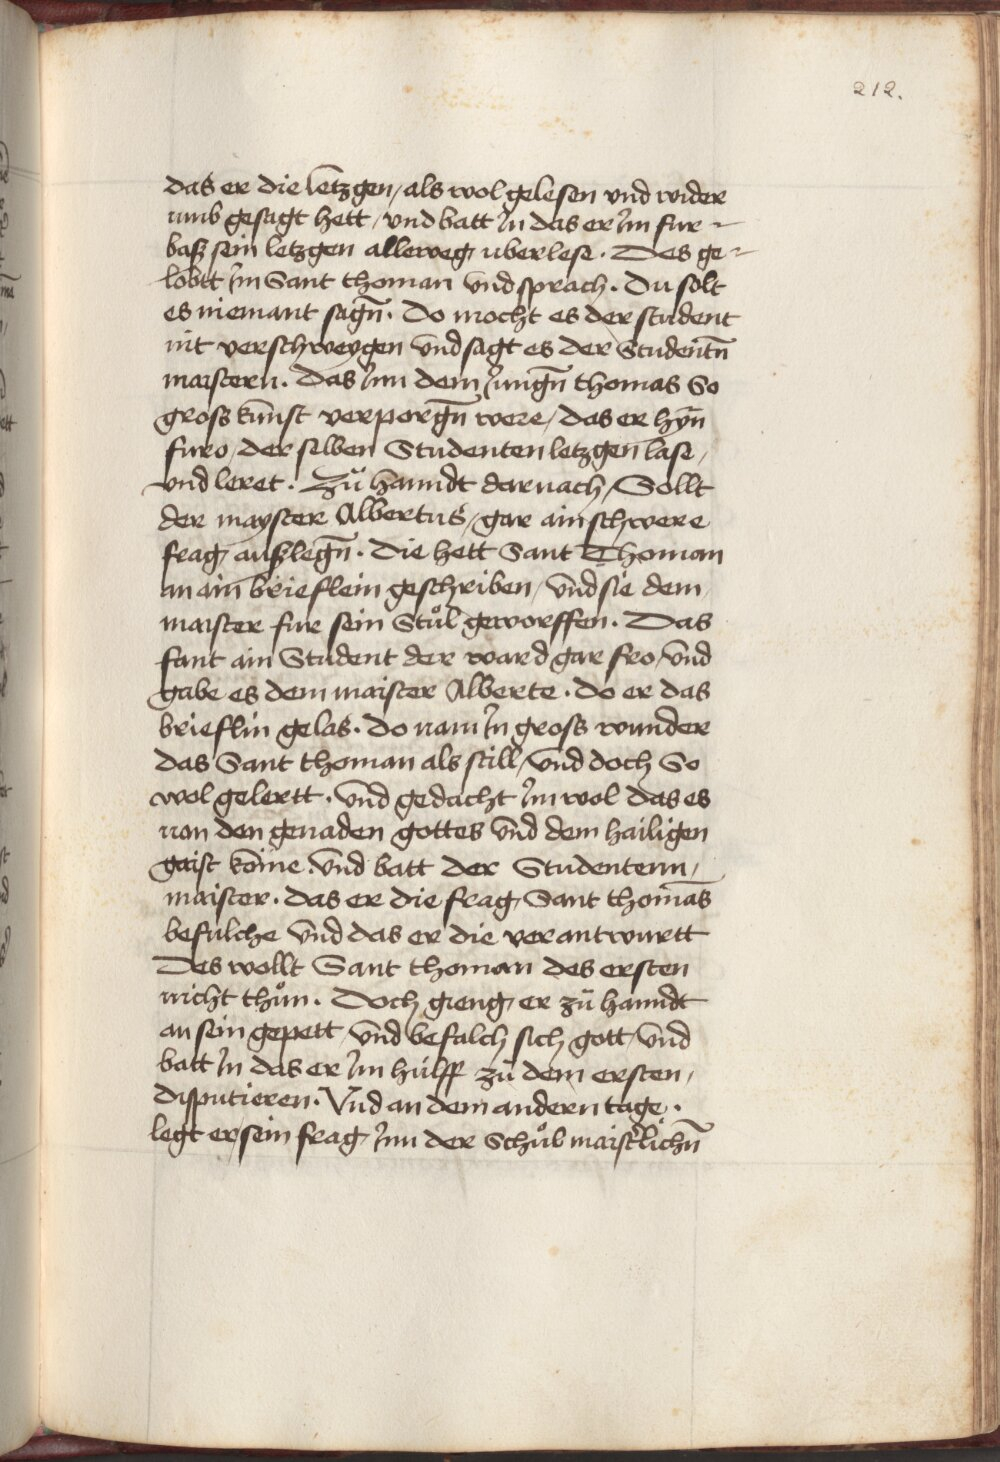 212.
das er die letzgen / als wol gelesen vnd wider
vmb gesagt hett / vnd batt Jn das er Jm fur-
baß sein letzgen alleweg uberlese . Des ge-
lobtt Jm Sant thoman vnd sprach . Du solt
es niemant sagn̄ . Do mocht es der student
nit verschweygen vnd sagt es der Studentn̄
maistern . Das Jnn dem Jungn̄ thomas So
gross kunst verporgn̄ were / das er hyn̄
furo / der selben Studenten letzgen lase /
vnd leret . Zů hanndt darnach / Sollt
der mayster Albertus / gar ain schwere
frag außlegn̄ . Die hett Sant Thoman
an ain brieflein geschriben / vnd sie dem /
maister fur sein Stůl geworffen . Das
fant ain Student der ward gar fro / vnd
gabe es dem maister Alberte . do er das
brieflin gelas . do nam Jn gross wunder
das Sant thoman als still / vnd doch So
wol gelertt . vnd gedacht Jm wol das es
von den genaden gottes vnd dem hailigen
gaist kōme . vnd batt der Studentenn /
maister . das er die frag / Sant thomas
befulche vnd das er die verantwurtt
Des wollt Sant thoman des ersten
nicht thůn . Doch gieng / er zů hanndt
an sein gepett / vnd befalch sich gott / vnd
batt Jn das er Jm hulff zů dem ersten /
disputieren . Vnd an dem andern tage .
legt er / sein frag / Jnn der Schůl maist̄lichn̄